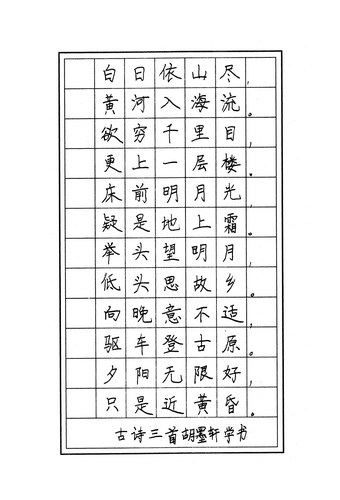 白日依山尽,
黄河入海流。
欲穷千里目,
更上一层楼。
床前明月光,
疑是地上霜。
举头望明月,
低头思故乡。
向晚意不适,
驱车登古原。
夕阳无限好,
只是近黄昏。
古诗三首胡墨轩学书